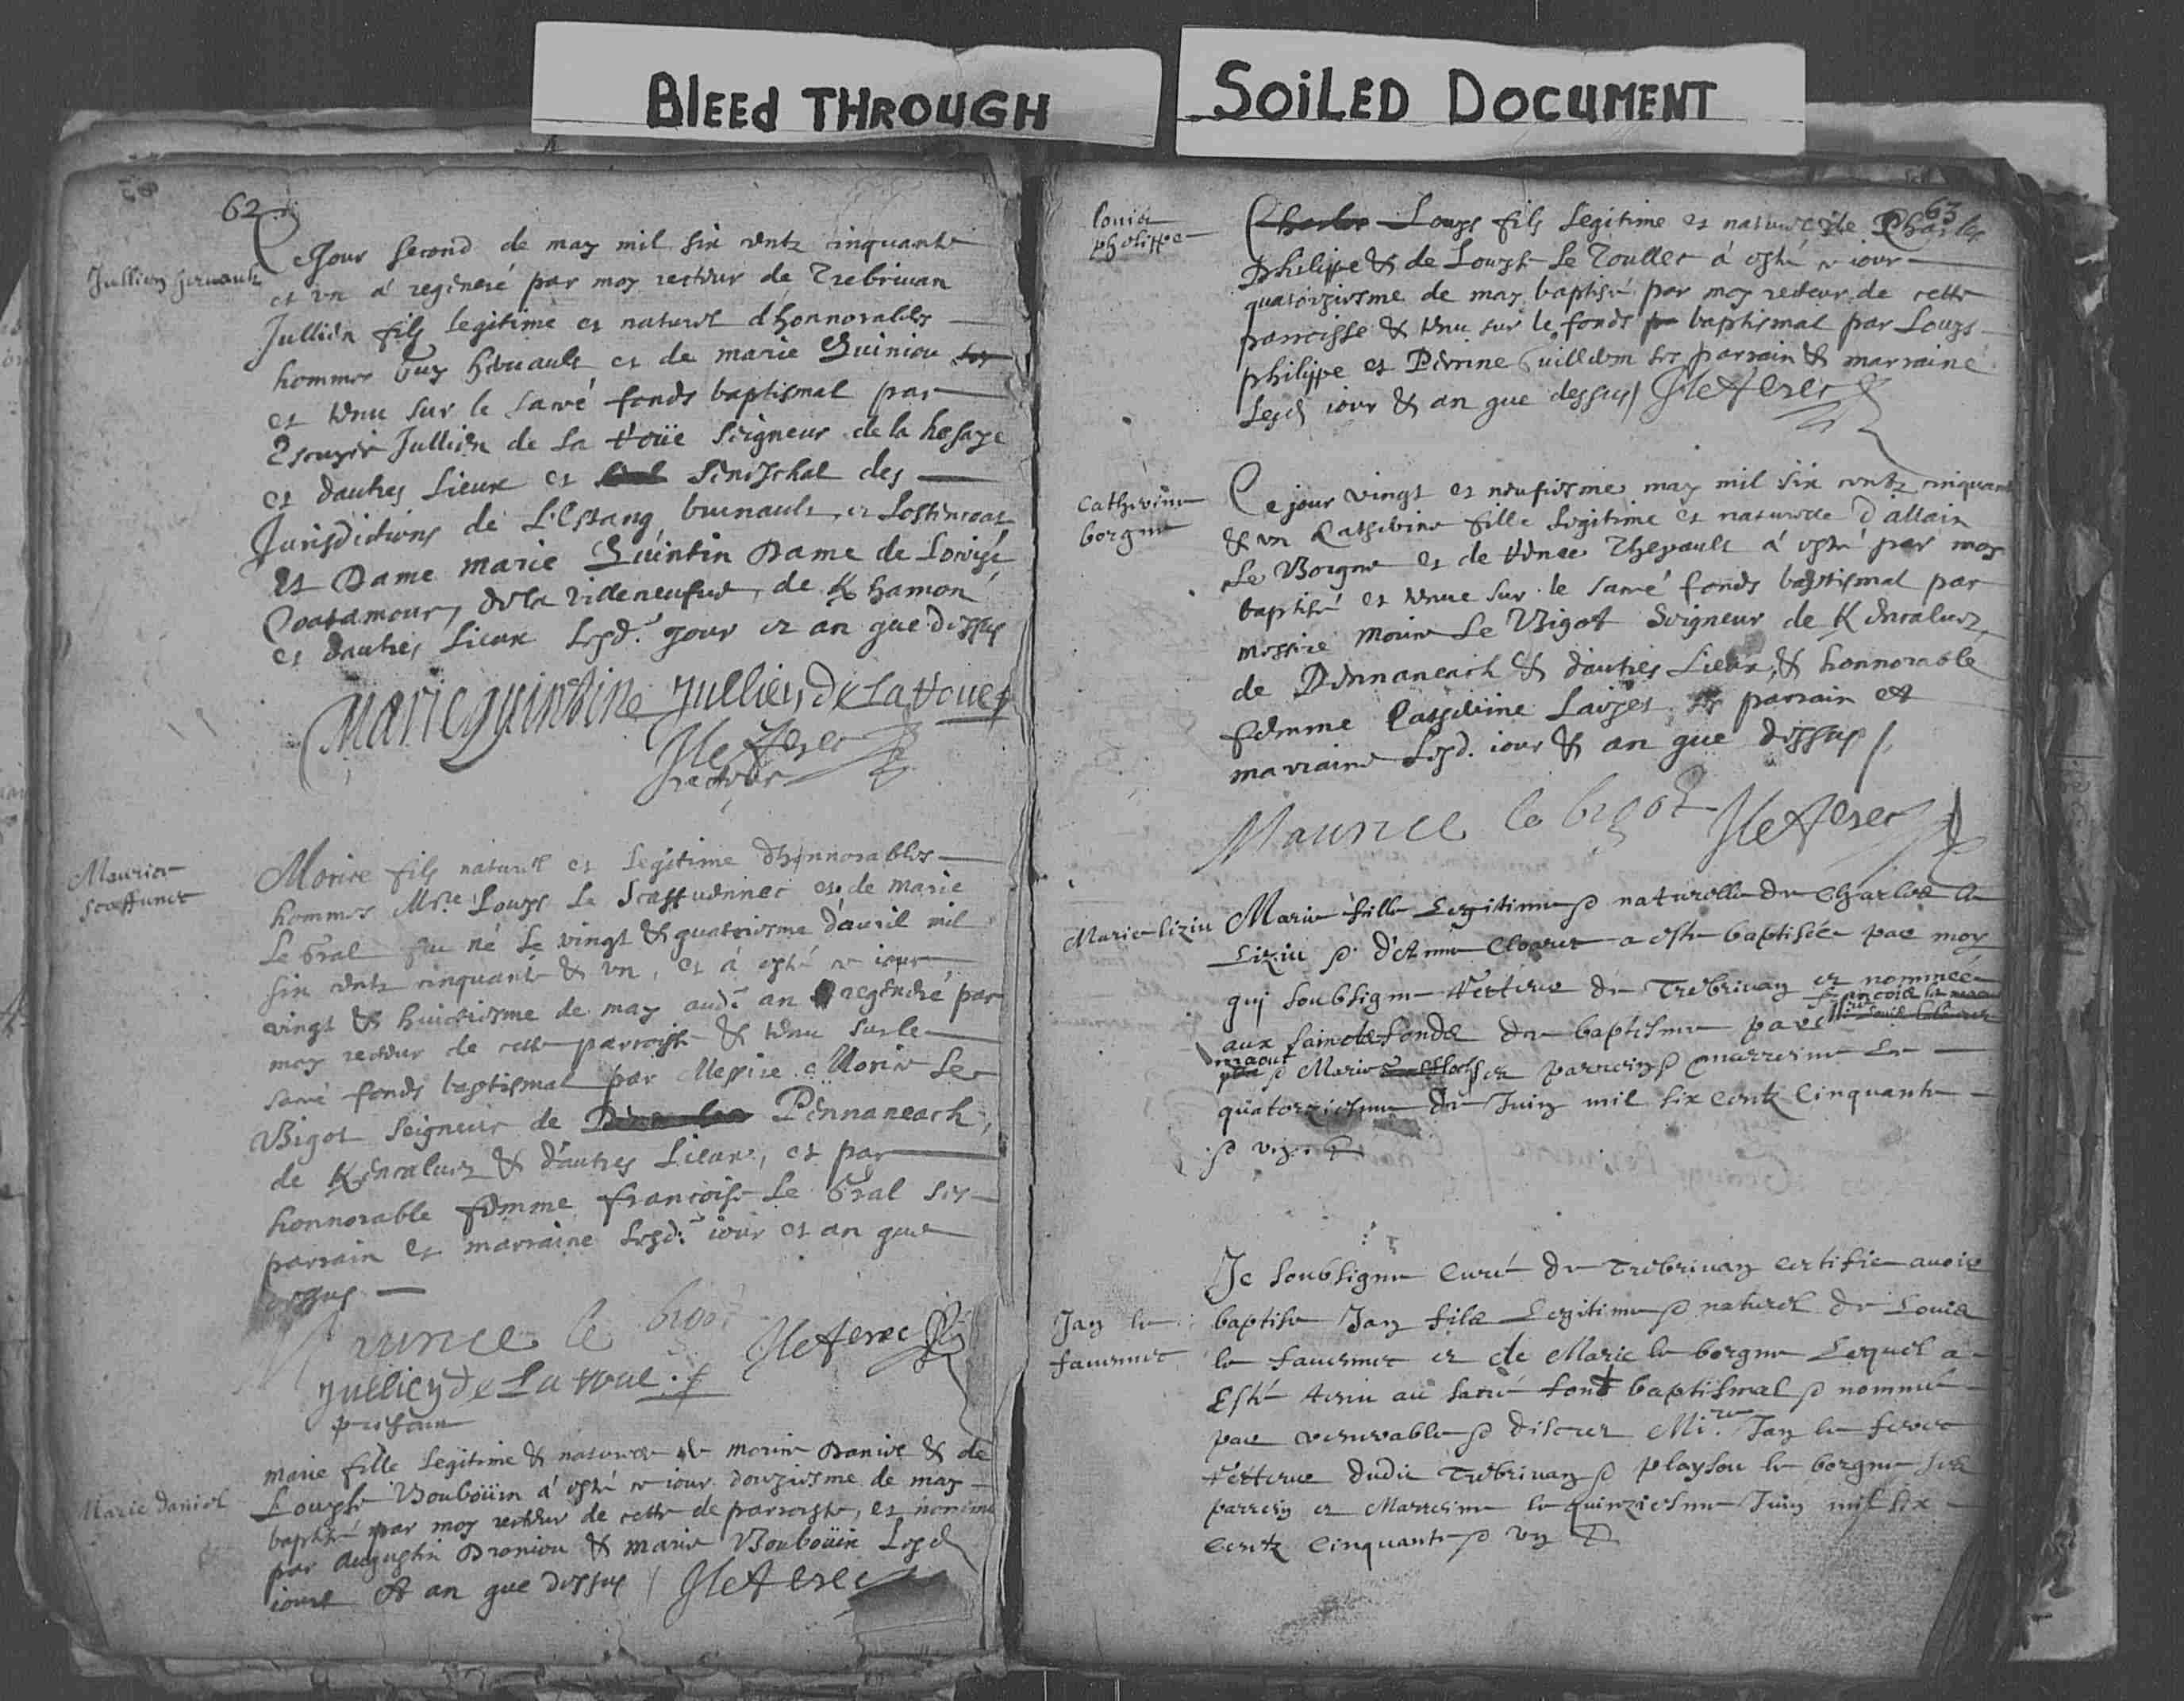 BlEEd THROUGH
SOiLED DOCUMENT
62
Jullien heruault
Ce Jour second de may mil six centz cinquante
et vn a regeneré par moy recteur de Trebriuan
Jullien fils legitime et naturel d'honnorables
hommes Guy heruault et de marie Guiniou ses
et tenu sur le sacré fonds baptismal par
Escuyer Jullien de la Houe seigneur de la hesaye
et dautres lieux et seneschal des
Jurisdictions de L'Estang, bruenault, et Lostencoat
et Dame marie Quintin Dame de
Coatamour, de la villeneufue, de K hamon
et dautres lieux lesd. jour et an que dessus
marie quintine Jullien de La Houe
J le Aerec
recteur
Maurice
Scoffunec
Morice fils naturel et legitime d'honnorables
hommes Mre Louys Le Scaffuennec et de marie
Le Gral fut né le vingt & quatriesme d'auril mil
six centz cinquante & vn, et á esté ce iour
vingt & huictiesme de may aud. an regeneré par
moy recteur de cette parroisse & tenu sur le
sacré fonds baptismal par Messire Morice Le
Bigot seigneur de Pennaneach,
de Kencaluez & d'autres lieux, et par
honnorable femme francoise Le Gral ses
parrain et marraine lesd. iour et an que
dessus
Maurice le bigot J le Aerec
Jullien de La Houe
present
Marie Daniel
marie fille legitime & naturelle de morice Daniel & de
Louyse Boubouin á esté ce iour douziesme de may
baptisé par moy recteur de cette de parroisse, et nommé
par Augustin Droniou & marie Boubouin lesd
iour & an que dessus / J le Aerec
63
Louis
phelippe
Charles Louys fils legitime et naturel de Charles
Philippe & de Louyse Le Toullec á esté ce iour
quatorziesme de may baptisé par moy recteur de cette
parroisse & tenu sur le fonds baptismal par Louys
philippe et Perrine Guillerm ses parrain & marraine
lesd iour & an que dessus / J le Aerec
Catherine
borgne
Ce jour vingt et neufiesme may mil six centz cinquante
& vn Catherine fille legitime et naturelle d'allain
Le Borgne et de Thepault á esté par moy
baptisé et tenue sur le sacré fonds baptismal par
messire morice Le Bigot Seigneur de Kencaluez,
de Pennaneach & d'autres lieux, & honnorable
femme Catherine parrain et
marraine lesd. iour & an que dessus /
Maurice le bigot J le Aerec
Marie liziu
Marie fille Legitime & naturelle de Charles le
Liziu & d'Anne Cloarec a esté baptisée par moy
quj soubsigne recteur de Trebriuan et nommée
aux saincts fonds de baptisme par
& Marie parrein & marreine le
quatorziesme de Juin mil six centz Cinquante
& vn.
Jan le
fauennec
Je soubsigne Curé de Trebriuan certifie auoir
baptisé Jan fils Legitime & naturel de Louis
le fauennec et de Marie le borgne Lequel a
Esté tenu au sacré font baptismal & nommé
par venerable & discret Mi.re Jan le
recteur dudit Trebriuan & playsou le borgne ses
parrein et Marreine le quinziesme Juin mil six
centz Cinquante & vn